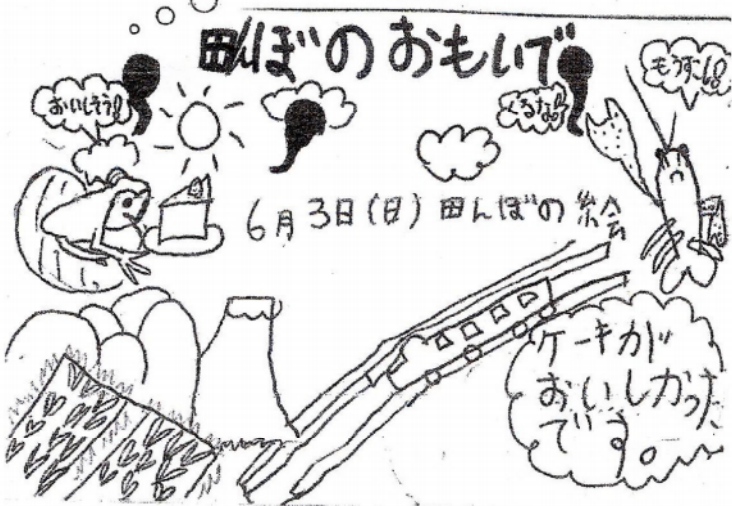 田んぼのおもいで
おいしそう!
くるな!
もうすこし!
6月3日(日)田んぼの絵
ケーキが
おいしかった
です